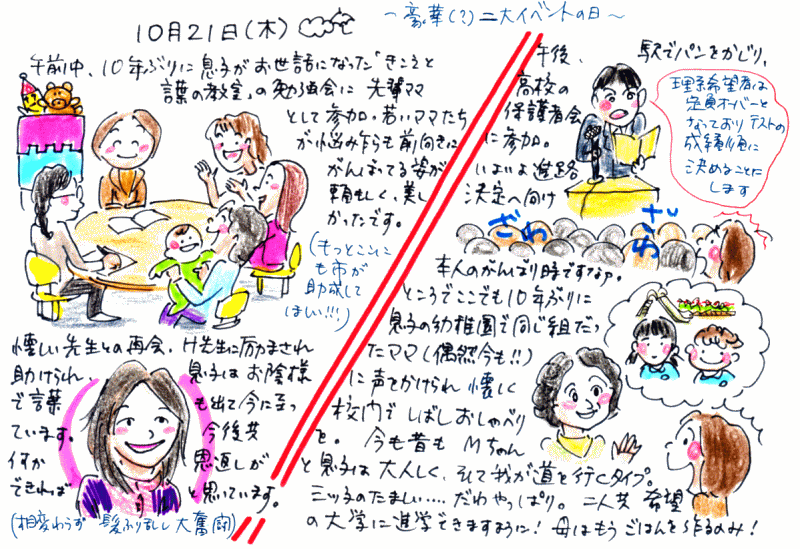 10月21日(木)
～豪華(?)二大イベントの日～
午前中、10年ぶりに息子がお世話になった「きこえと
言葉の教室」の勉強会に先輩ママ
として参加。若いママたち
が小悩み乍らも前向きに
がんばってる姿が
頼もしく、美し
かったです。
(もっとここに
も市が
助成して
ほしい!!!)
懐しい先生との再会。H先生に励まされ
助けられ、息子はお陰様
で言葉も出て今に至っ
ています。今後共
何か恩返しが
できればと思っています。
(相変わらず髪ふり乱し大奮闘)
午後、駅でパンをかじり、
高校の
保護者会
に参加。
いよいよ進路
決定へ向け
理系希望者は
定員オーバーと
なっておりテストの
成績順に
決めることに
します
ざわ
ざわ
本人のがんばり時ですなァ。
ところでここでも10年ぶりに
息子の幼稚園で同じ組だっ
たママ(偶然今も!!)
に声をかけられ懐しく
校内でしばしおしゃべり
を。今も昔もMちゃん
と息子は大人しく、そして我が道を行くタイプ。
三ッ子のたましい‥‥だわやっぱり。二人共希望
の大学に進学できますように!母はもうごはんを作るのみ!